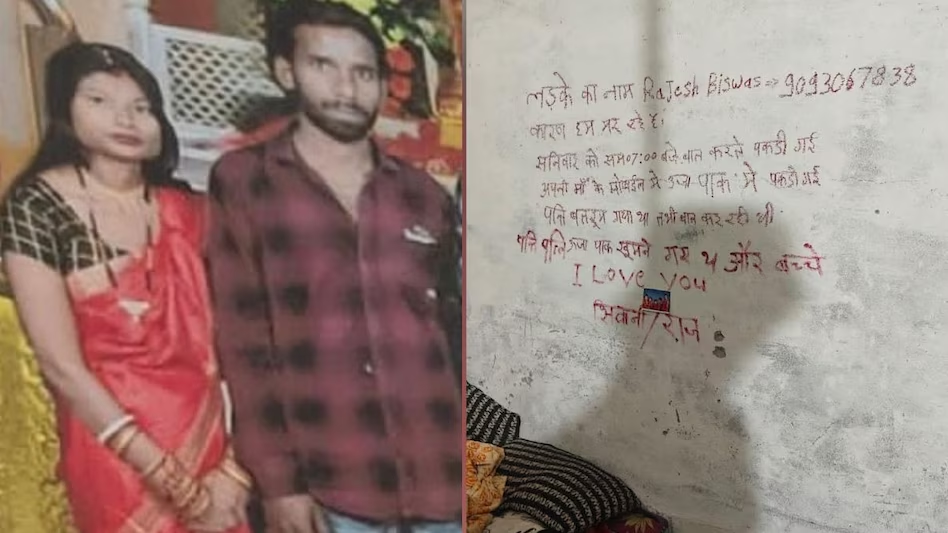 लड़के का नाम Rajesh Biswas => 9093067838
कारण हम मर रहे है।
सनिवार को सम07:00 बजे बात करते पकडी गई
अपनी माँ के मोबाईल मे उर्जा पार्क मे पकडी गई
पति बातरूम गया था तभी बात कर रही थी
पति पत्नि उर्जा पार्क घुमने गए थे और बच्चे
I Love You
शिवानी/राज